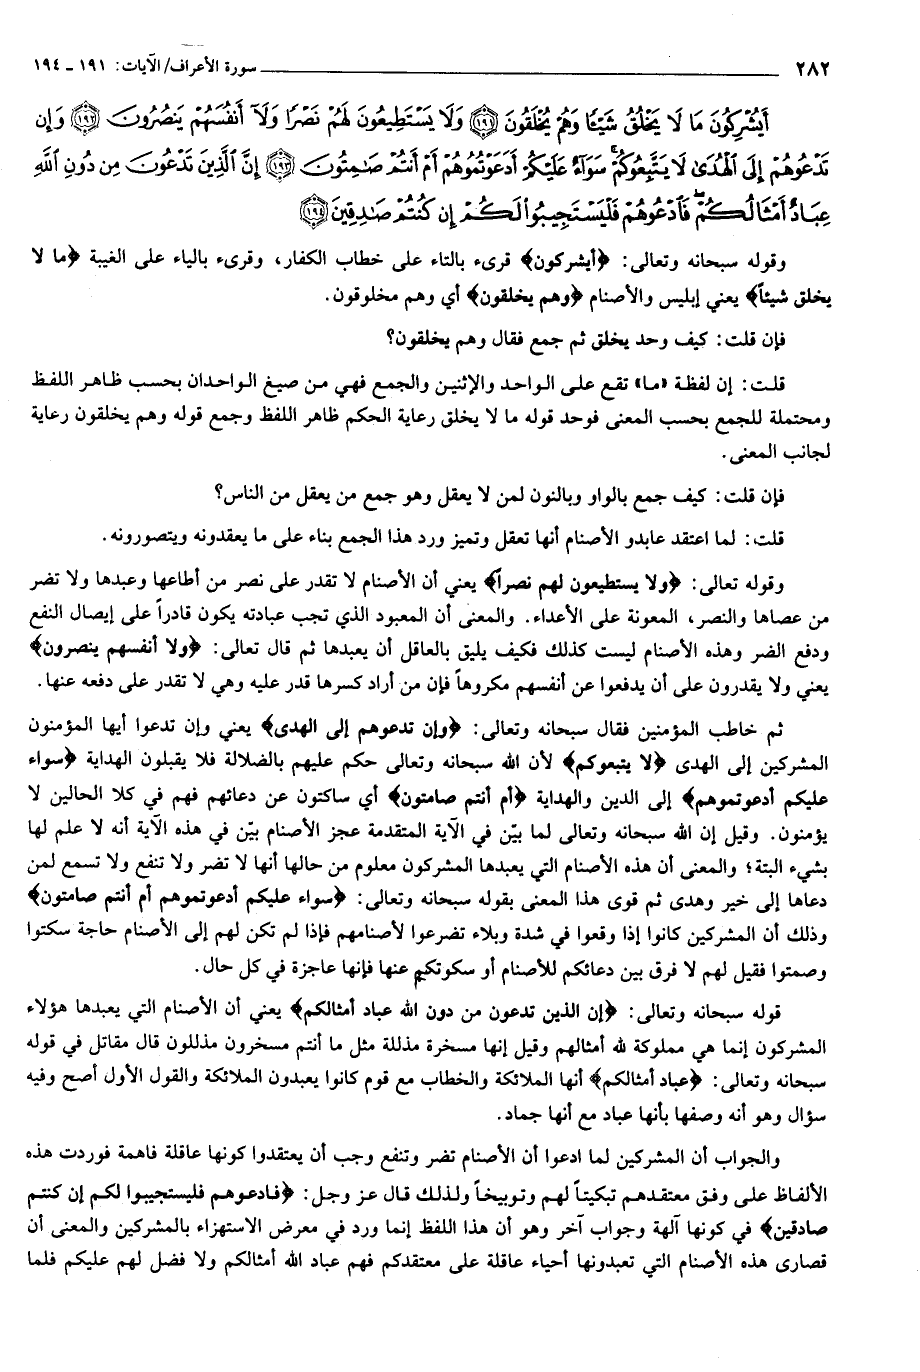 ٢٨٢ سورة الأعراف/ الآيات: ١٩١ ـ ١٩٤
أَيُشْرِكُونَ مَا لَا يَخْلُقُ شَيْئًا وَهُمْ يُخْلَقُونَ ﴿١٩١﴾ وَلَا يَسْتَطِيعُونَ لَهُمْ نَصْرًا وَلَا أَنفُسَهُمْ يَنصُرُونَ ﴿١٩٢﴾ وَإِن
تَدْعُوهُمْ إِلَى الْهُدَىٰ لَا يَتَّبِعُوكُمْ سَوَاءٌ عَلَيْكُمْ أَدَعَوْتُمُوهُمْ أَمْ أَنتُمْ صَامِتُونَ ﴿١٩٣﴾ إِنَّ الَّذِينَ تَدْعُونَ مِن دُونِ اللَّهِ
عِبَادٌ أَمْثَالُكُمْ فَادْعُوهُمْ فَلْيَسْتَجِيبُوا لَكُمْ إِن كُنتُمْ صَادِقِينَ ﴿١٩٤﴾
وقوله سبحانه وتعالى: ﴿أيشركون﴾ قرىء بالتاء على خطاب الكفار، وقرىء بالياء على الغيبة ﴿ما لا
يخلق شيئاً﴾ يعني إبليس والأصنام ﴿وهم يخلقون﴾ أي وهم مخلوقون.
فإن قلت: كيف وحد يخلق ثم جمع فقال وهم يخلقون؟
قلت: إن لفظة «ما» تقع على الواحد والإثنين والجمع فهي من صيغ الواحدان بحسب ظاهر اللفظ
ومحتملة للجمع بحسب المعنى فوحد قوله ما لا يخلق رعاية الحكم ظاهر اللفظ وجمع قوله وهم يخلقون رعاية
لجانب المعنى.
فإن قلت: كيف جمع بالواو وبالنون لمن لا يعقل وهو جمع من يعقل من الناس؟
قلت: لما اعتقد عابدو الأصنام أنها تعقل وتميز ورد هذا الجمع بناء على ما يعقدونه ويتصورونه.
وقوله تعالى: ﴿ولا يستطيعون لهم نصراً﴾ يعني أن الأصنام لا تقدر على نصر من أطاعها وعبدها ولا تضر
من عصاها والنصر، المعونة على الأعداء. والمعنى أن المعبود الذي تجب عبادته يكون قادراً على إيصال النفع
ودفع الضر وهذه الأصنام ليست كذلك فكيف يليق بالعاقل أن يعبدها ثم قال تعالى: ﴿ولا أنفسهم ينصرون﴾
يعني ولا يقدرون على أن يدفعوا عن أنفسهم مكروهاً فإن من أراد كسرها قدر عليه وهي لا تقدر على دفعه عنها.
ثم خاطب المؤمنين فقال سبحانه وتعالى: ﴿وإن تدعوهم إلى الهدى﴾ يعني وإن تدعوا أيها المؤمنون
المشركين إلى الهدى ﴿لا يتبعوكم﴾ لأن الله سبحانه وتعالى حكم عليهم بالضلالة فلا يقبلون الهداية ﴿سواء
عليكم أدعوتموهم﴾ إلى الدين والهداية ﴿أم أنتم صامتون﴾ أي ساكتون عن دعائهم فهم في كلا الحالين لا
يؤمنون. وقيل إن الله سبحانه وتعالى لما بيّن في الآية المتقدمة عجز الأصنام بيّن في هذه الآية أنه لا علم لها
بشيء البتة؛ والمعنى أن هذه الأصنام التي يعبدها المشركون معلوم من حالها أنها لا تضر ولا تنفع ولا تسمع لمن
دعاها إلى خير وهدى ثم قوى هذا المعنى بقوله سبحانه وتعالى: ﴿سواء عليكم أدعوتموهم أم أنتم صامتون﴾
وذلك أن المشركين كانوا إذا وقعوا في شدة وبلاء تضرعوا لأصنامهم فإذا لم تكن لهم إلى الأصنام حاجة سكتوا
وصمتوا فقيل لهم لا فرق بين دعائكم للأصنام أو سكوتكم عنها فإنها عاجزة في كل حال.
قوله سبحانه وتعالى: ﴿إن الذين تدعون من دون الله عباد أمثالكم﴾ يعني أن الأصنام التي يعبدها هؤلاء
المشركون إنما هي مملوكة لله أمثالهم وقيل إنها مسخرة مذللة مثل ما أنتم مسخرون مذللون قال مقاتل في قوله
سبحانه وتعالى: ﴿عباد أمثالكم﴾ أنها الملائكة والخطاب مع قوم كانوا يعبدون الملائكة والقول الأول أصح وفيه
سؤال وهو أنه وصفها بأنها عباد مع أنها جماد.
والجواب أن المشركين لما ادعوا أن الأصنام تضر وتنفع وجب أن يعتقدوا كونها عاقلة فاهمة فوردت هذه
الألفاظ على وفق معتقدهم تبكيتاً لهم وتوبيخاً ولذلك قال عز وجل: ﴿فادعوهم فليستجيبوا لكم إن كنتم
صادقين﴾ في كونها آلهة وجواب آخر وهو أن هذا اللفظ إنما ورد في معرض الاستهزاء بالمشركين والمعنى أن
قصارى هذه الأصنام التي تعبدونها أحياء عاقلة على معتقدكم فهم عباد الله أمثالكم ولا فضل لهم عليكم فلما